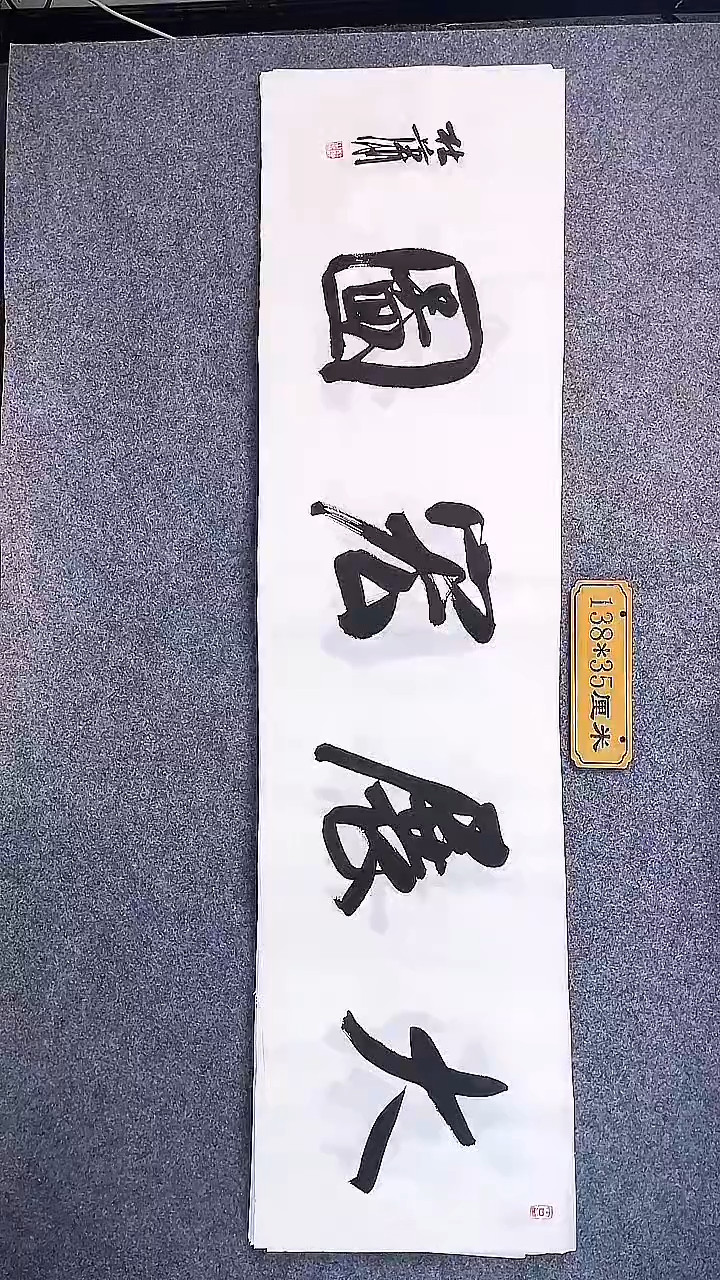 大展宏圖
138*35厘米